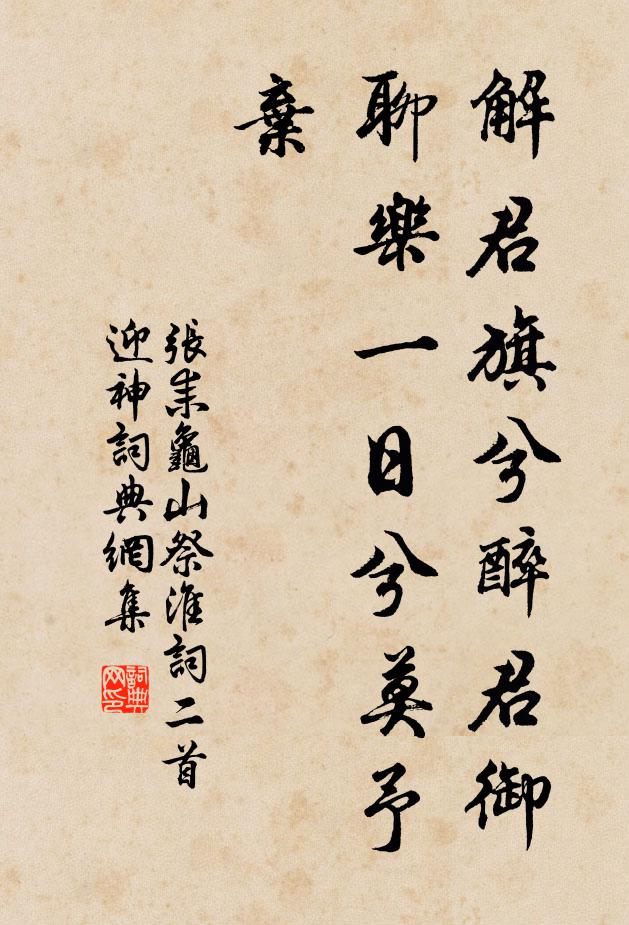 解君旗兮醉君御
聊樂一日兮莫予
棄
張耒龜山祭淮詞二首
迎神詞典網集
詞典网印